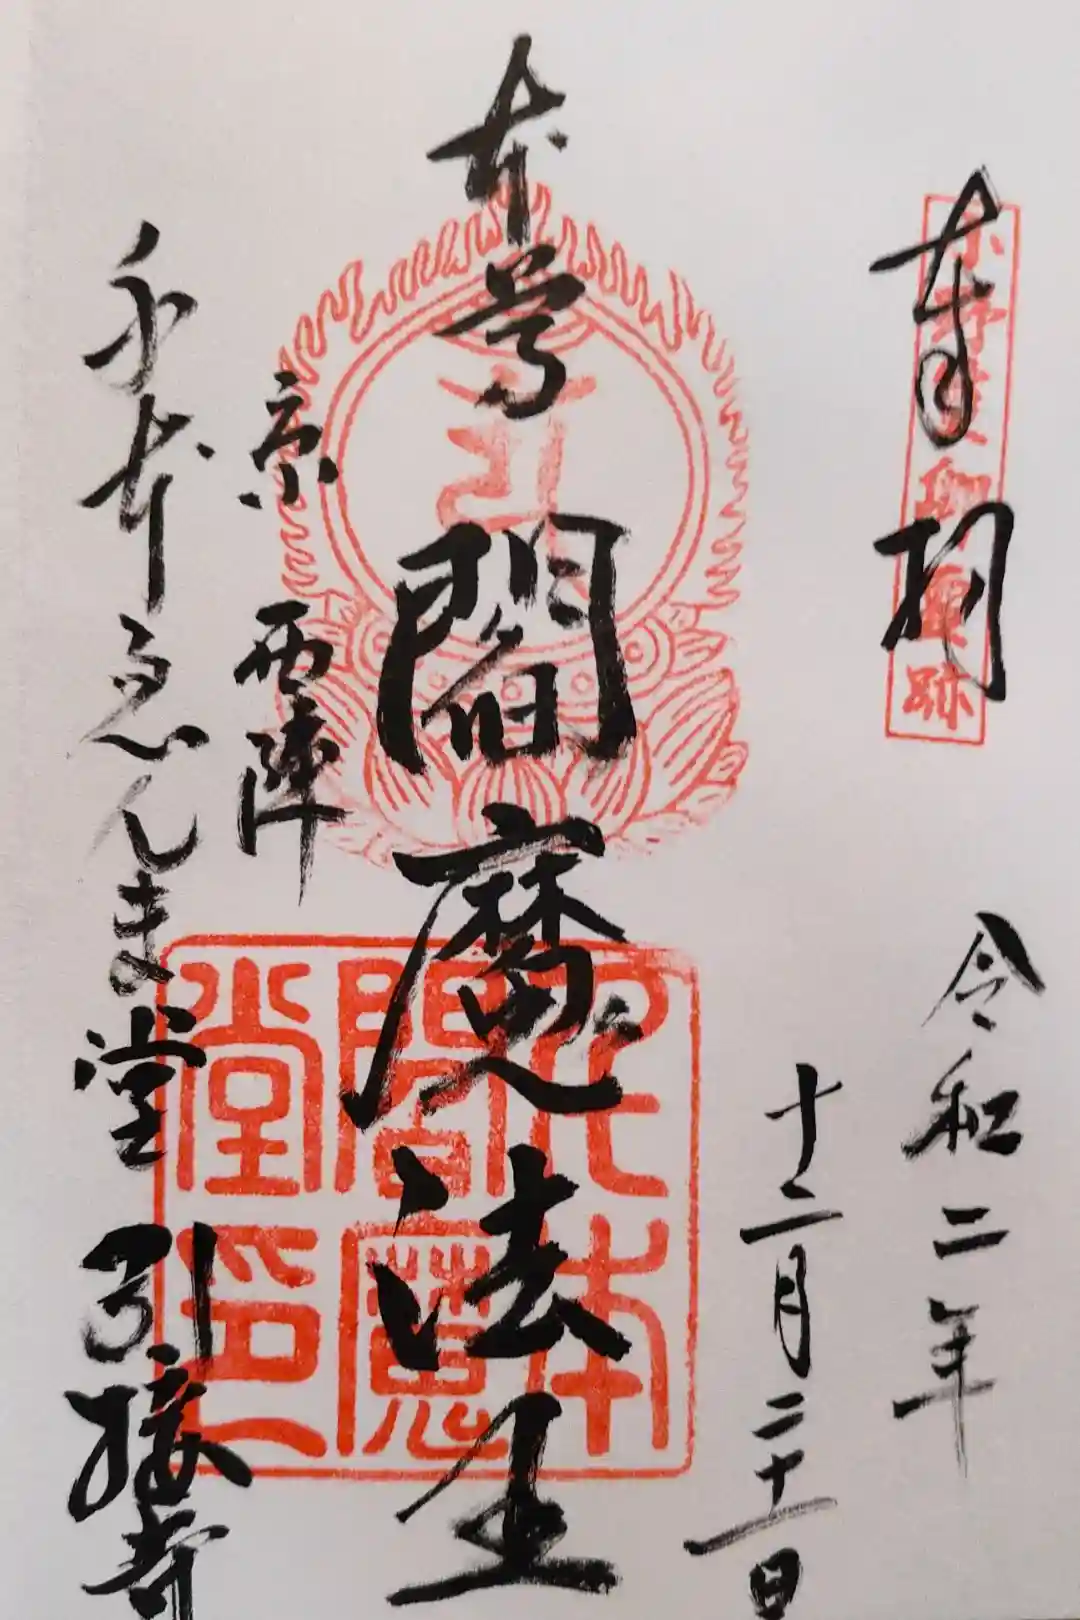 奉拝
令和二年
十二月二十一日
本尊
閻魔法王
京 西陣
千本ゑんま堂 引接寺
千本
閻魔
堂印